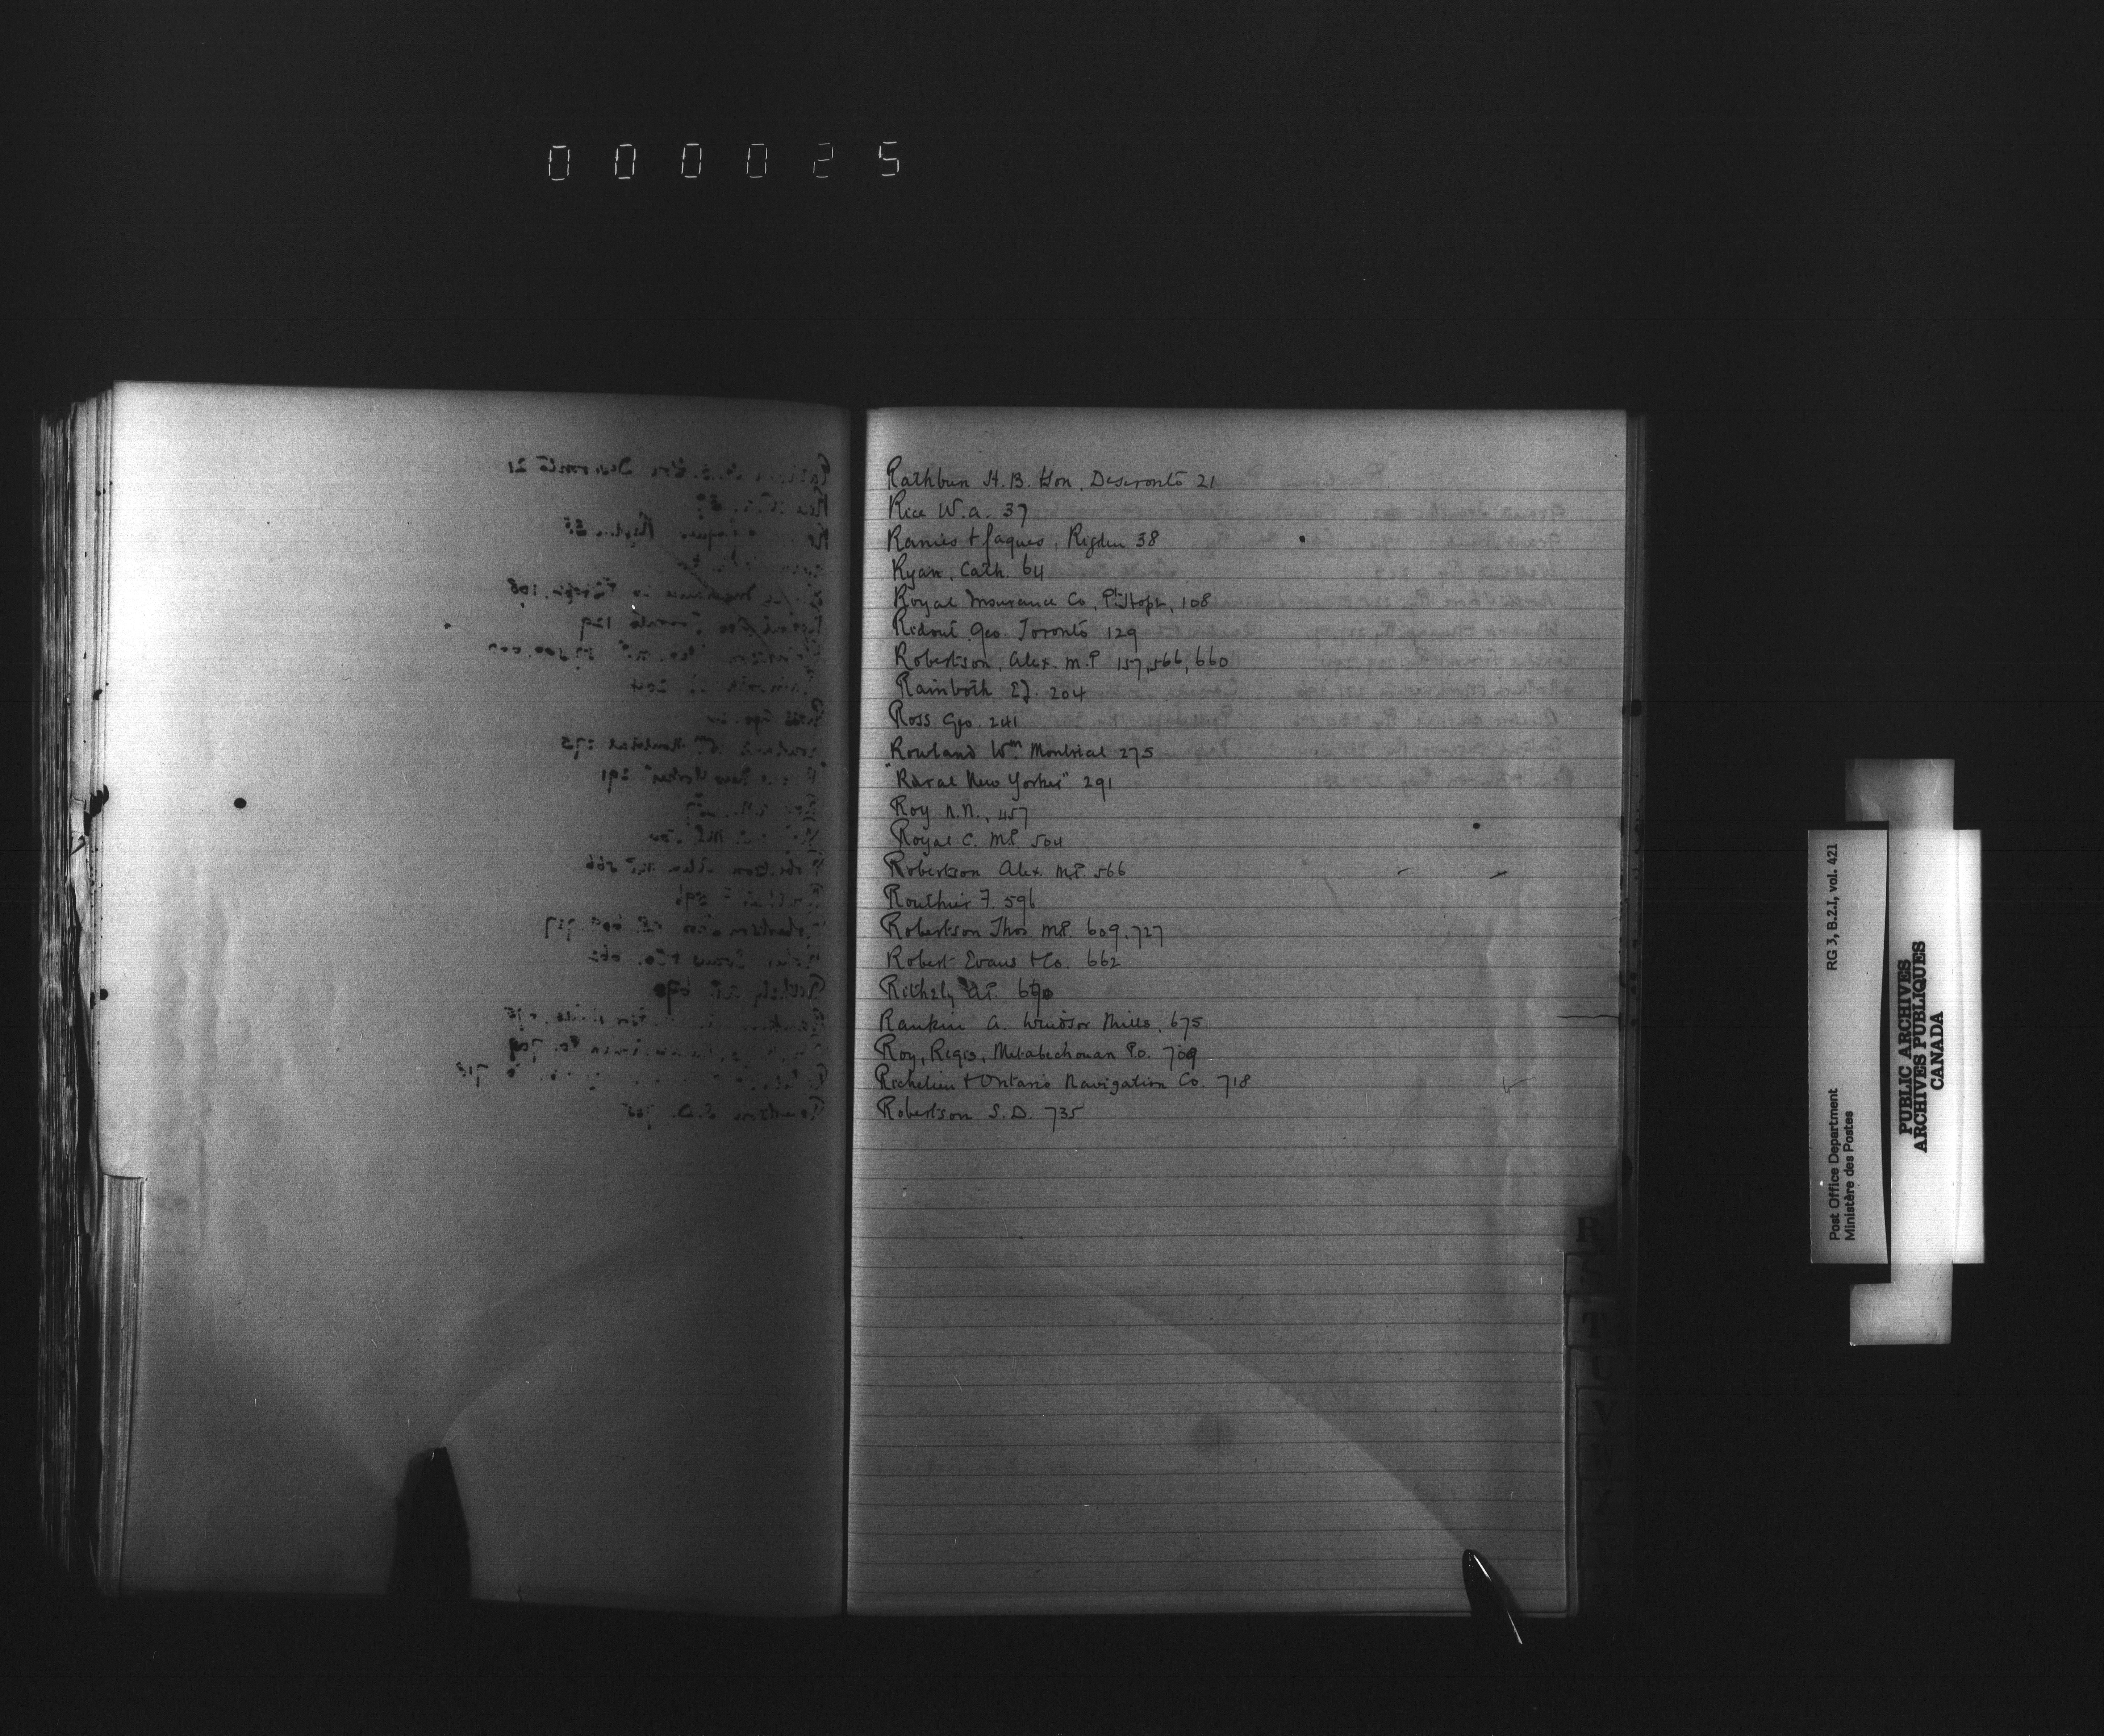 000025
Rathbun H. B. Hon. Deseronto 21
Rice W. A. 37
Ranies + Jaques, Rigden 38
Ryan, Cath. 64
Royal Insurance Co, Pt. Hope, 108
Ridout Geo. Toronto 129
Robertson, Alex. M.P 157, 566, 660
Rainboth E.J. 204
Ross Geo. 241
Rowland Wm. Montreal 275
"Rural New Yorker" 291
Roy N.N., 457
Royal C. M.P. 504
Robertson Alex. M.P. 566
Routhier F. 596
Robertson Thos M.P. 609, 727
Robert Evans & Co. 662
670
Rankin A. Windsor Mills, 675
Roy, Regis, Metabechouan P.O. 709
Richelieu & Ontario Navigation Co. 718
Robertson S. D. 735
R
S
T
U
V
W
X
Post Office Department
Ministère des Postes
RG 3, B.2.I, vol. 421
PUBLIC ARCHIVES
ARCHIVES PUBLIQUES
CANADA